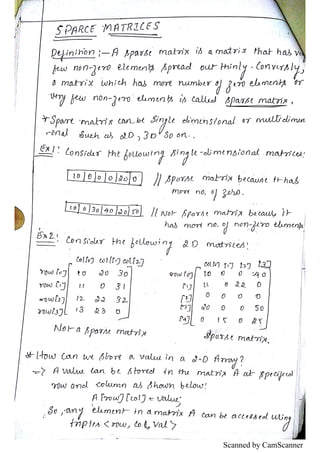 SPARCE MATRICES
Definition :- A sparse matrix is a matrix that has very
few non-zero elements spread out thinly. Conversly,
a matrix which has more number of zero elements or
very few non-zero elements is called sparse matrix.
* Spare matrix can be single dimensional or multidimen
-onal such as 2D, 3D so on..
Ex1: Consider the following single-dimensional matrices:
10 0 0 0 20 0 // sparse matrix because it has
more no. of zero.
10 0 30 40 20 50 // Not sparse matrix because it
has more no. of non-zero elements
Ex2: Consider the following 2D matrices:
col[0] col[1] col[2]
row[0] 10 20 30
row[1] 11 0 31
row[2] 12 22 32
row[3] 13 23 0
Not a sparse matrix
col[0] [1] [2] [3]
row[0] 10 0 0 40
[1] 11 0 22 0
[2] 0 0 0 0
[3] 20 0 0 50
[4] 0 15 0 25
Sparse matrix.
* How can we store a value in a 2-D Array?
=> A value can be stored in the matrix A at specified
row and column as shown below:
A [row] [col] = value;
So, any element in a matrix A can be accessed using
triples <row, col, val>
Scanned by CamScanner